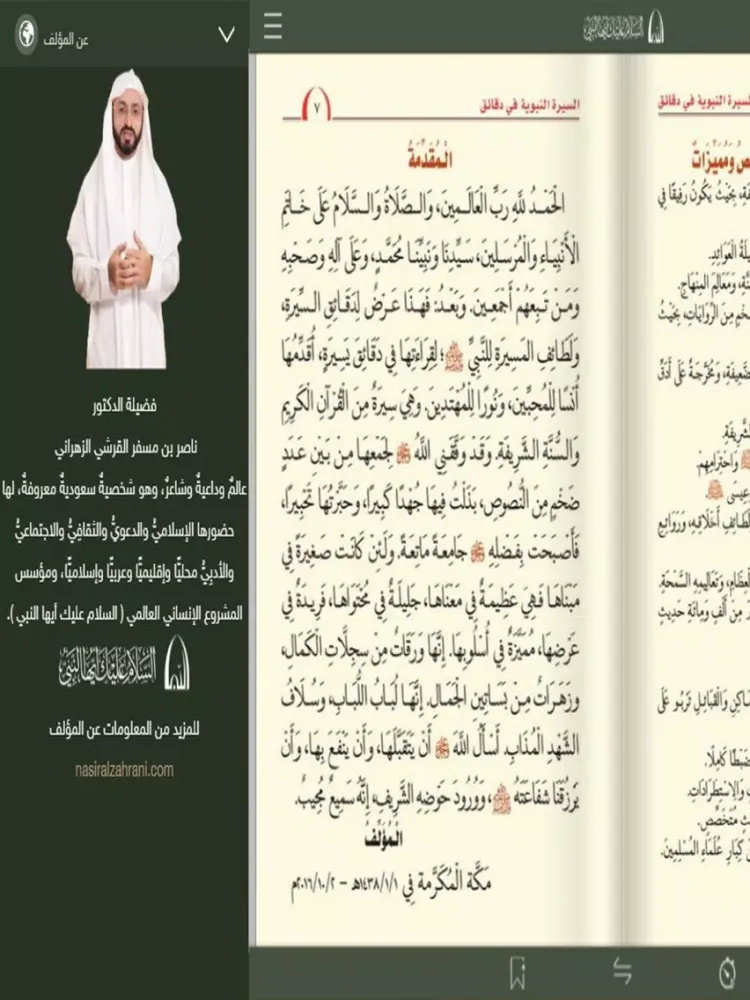 عن المؤلف
فضيلة الدكتور
ناصر بن مسفر القرشي الزهراني
عالمٌ وداعيةٌ وشاعرٌ، وهو شخصيةٌ سعوديةٌ معروفةٌ، لها
حضورها الإسلاميُّ والدعويُّ والثقافيُّ والاجتماعيُّ
والأدبيُّ محليًّا وإقليميًّا وعربيًّا وإسلاميًّا، ومؤسس
المشروع الإنساني العالمي ( السلام عليك أيها النبي ).
السلام عليك أيها النبي
للمزيد من المعلومات عن المؤلف
nasiralzahrani.com
السلام عليك أيها النبي
السيرة النبوية في دقائق
٧
الْمُقَدِّمَةُ
الْحَمْدُ لِلَّهِ رَبِّ الْعَالَمِينَ، وَالصَّلَاةُ وَالسَّلَامُ عَلَى خَاتَمِ
الْأَنْبِيَاءِ وَالْمُرْسَلِينَ، سَيِّدِنَا وَنَبِيِّنَا مُحَمَّدٍ، وَعَلَى آلِهِ وَصَحْبِهِ
وَمَنْ تَبِعَهُمْ أَجْمَعِينَ. وَبَعْدُ: فَهَذَا عَرْضٌ لِدَقَائِقِ السِّيرَةِ،
وَلَطَائِفِ الْمَسِيرَةِ لِلنَّبِيِّ ﷺ؛ لِقِرَاءَتِهَا فِي دَقَائِقَ يَسِيرَةٍ، أُقَدِّمُهَا
أُنْسًا لِلْمُحِبِّينَ، وَنُورًا لِلْمُهْتَدِينَ. وَهِيَ سِيرَةٌ مِنَ الْقُرْآنِ الْكَرِيمِ
وَالسُّنَّةِ الشَّرِيفَةِ. وَقَدْ وَفَّقَنِي اللَّهُ لِجَمْعِهَا مِنْ بَيْنِ عَدَدٍ
ضَخْمٍ مِنَ النُّصُوصِ، بَذَلْتُ فِيهَا جُهْدًا كَبِيرًا، وَحَبَّرْتُهَا تَحْبِيرًا،
فَأَصْبَحَتْ بِفَضْلِهِ جَامِعَةً مَاتِعَةً. وَلَئِنْ كَانَتْ صَغِيرَةً فِي
مَبْنَاهَا فَهِيَ عَظِيمَةٌ فِي مَعْنَاهَا، جَلِيلَةٌ فِي مُحْتَوَاهَا، فَرِيدَةٌ فِي
عَرْضِهَا، مُمَيَّزَةٌ فِي أُسْلُوبِهَا. إِنَّهَا وَرَقَاتٌ مِنْ سِجِلَّاتِ الْكَمَالِ،
وَزَهَرَاتٌ مِنْ بَسَاتِينِ الْجَمَالِ. إِنَّهَا لُبَابُ اللُّبَابِ، وَسُلَافُ
الشَّهْدِ الْمُذَابِ. أَسْأَلُ اللَّهَ أَنْ يَتَقَبَّلَهَا، وَأَنْ يَنْفَعَ بِهَا، وَأَنْ
يَرْزُقَنَا شَفَاعَتَهُ ﷺ، وَوُرُودَ حَوْضِهِ الشَّرِيفِ، إِنَّهُ سَمِيعٌ مُجِيبٌ.
الْمُؤَلِّفُ
مَكَّةَ الْمُكَرَّمَةِ فِي ١٤٣٨/١/١هـ – ٢٠١٦/١٠/٢م
السيرة النبوية في دقائق
وَمُمَيِّزَاتٌ
بِحَيْثُ يَكُونُ رَفِيقًا فِي
الْعَوَائِدِ.
وَمَعَالِمَ الْمِنْهَاجِ.
مِنَ الرِّوَايَاتِ، بِحَيْثُ
وَمُخَرَّجَةً عَلَى أَدَقِّ
الشَّرِيفَةِ.
وَاحْتِرَامِهِمْ.
أَخْلَاقِهِ، وَرَوَائِعِ
وَتَعَالِيمِهِ السَّمْحَةِ.
مِنْ أَلْفٍ وَمِائَةِ حَدِيثٍ
وَالْقَبَائِلِ تَرْبُو عَلَى
ضَبْطًا كَامِلًا.
وَالِاسْتِطْرَادَاتِ.
مُتَخَصِّصٍ.
كِبَارِ عُلَمَاءِ الْمُسْلِمِينَ.